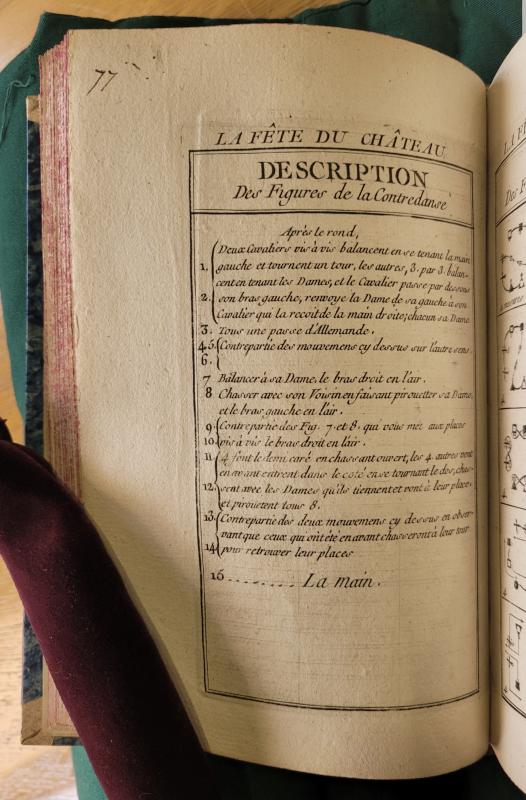 77
LA FÊTE DU CHÂTEAU
DESCRIPTION
Des Figures de la Contredanse
Après le rond,
Deux Cavaliers vis à vis balancent en se tenant la main
1. gauche et tournent un tour, les autres, 3. par 3. balan-
cent en tenant les Dames, et le Cavalier passe par dessous
2. son bras gauche, renvoye la Dame de sa gauche à son
Cavalier qui la recoit de la main droite; chacun sa Dame
3. Tous une passe d'Allemande.
4. 5. Contrepartie des mouvemens cy dessus sur l'autre sens.
6.
7 Balancer à sa Dame, le bras droit en l'air.
8 Chasser avec son Voisin en faisant pirouetter sa Dame,
et le bras gauche en l'air.
9 Contrepartie des Fig. 7 et 8. qui vous met aux places
10. vis à vis le bras droit en l'air.
11 4 font le demi caré en chassant ouvert, les 4 autres vont
en avant entrent dans le coté en se tournant le dos, chas-
12. sent avec les Dames qu'ils tiennent et vont à leur place,
et pirouetent tous 8.
13. Contrepartie des deux mouvemens cy dessus en obser-
vant que ceux qui ont été en avant chasseront à leur tour
14 pour retrouver leur places
15 ......... La main.